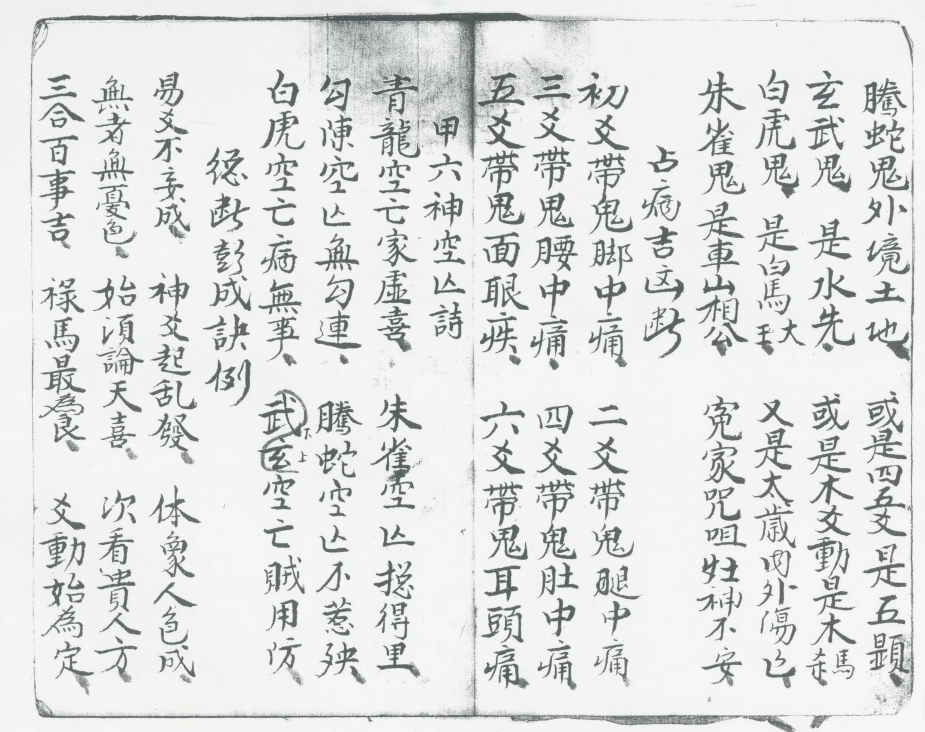 騰蛇鬼外境土地 或是四五爻是五顕
玄武鬼 是水先 或是木爻動是木
白虎鬼 是白馬大王 又是太歲内外傷亡
朱雀鬼是車山相公 冤家咒咀灶神不安
占病吉凶断
初爻帶鬼脚中痛 二爻帶鬼腿中痛
三爻帶鬼腰中痛 四爻帶鬼肚中痛
五爻帶鬼面眼疾 六爻帶鬼耳頭痛
甲六神空亡詩
青龍空亡家虛喜 朱雀空亡摠得里
勾陳空亡無勾連 騰蛇空亡不惹殃
白虎空亡病無事 武玄空亡賊用防
下上
総断彭成訣例
易爻不妄成 神爻起乱發 体象人色成
無者無憂色 始須論天喜 次看貴人方
三合百事吉 禄馬最為良 爻動始為定